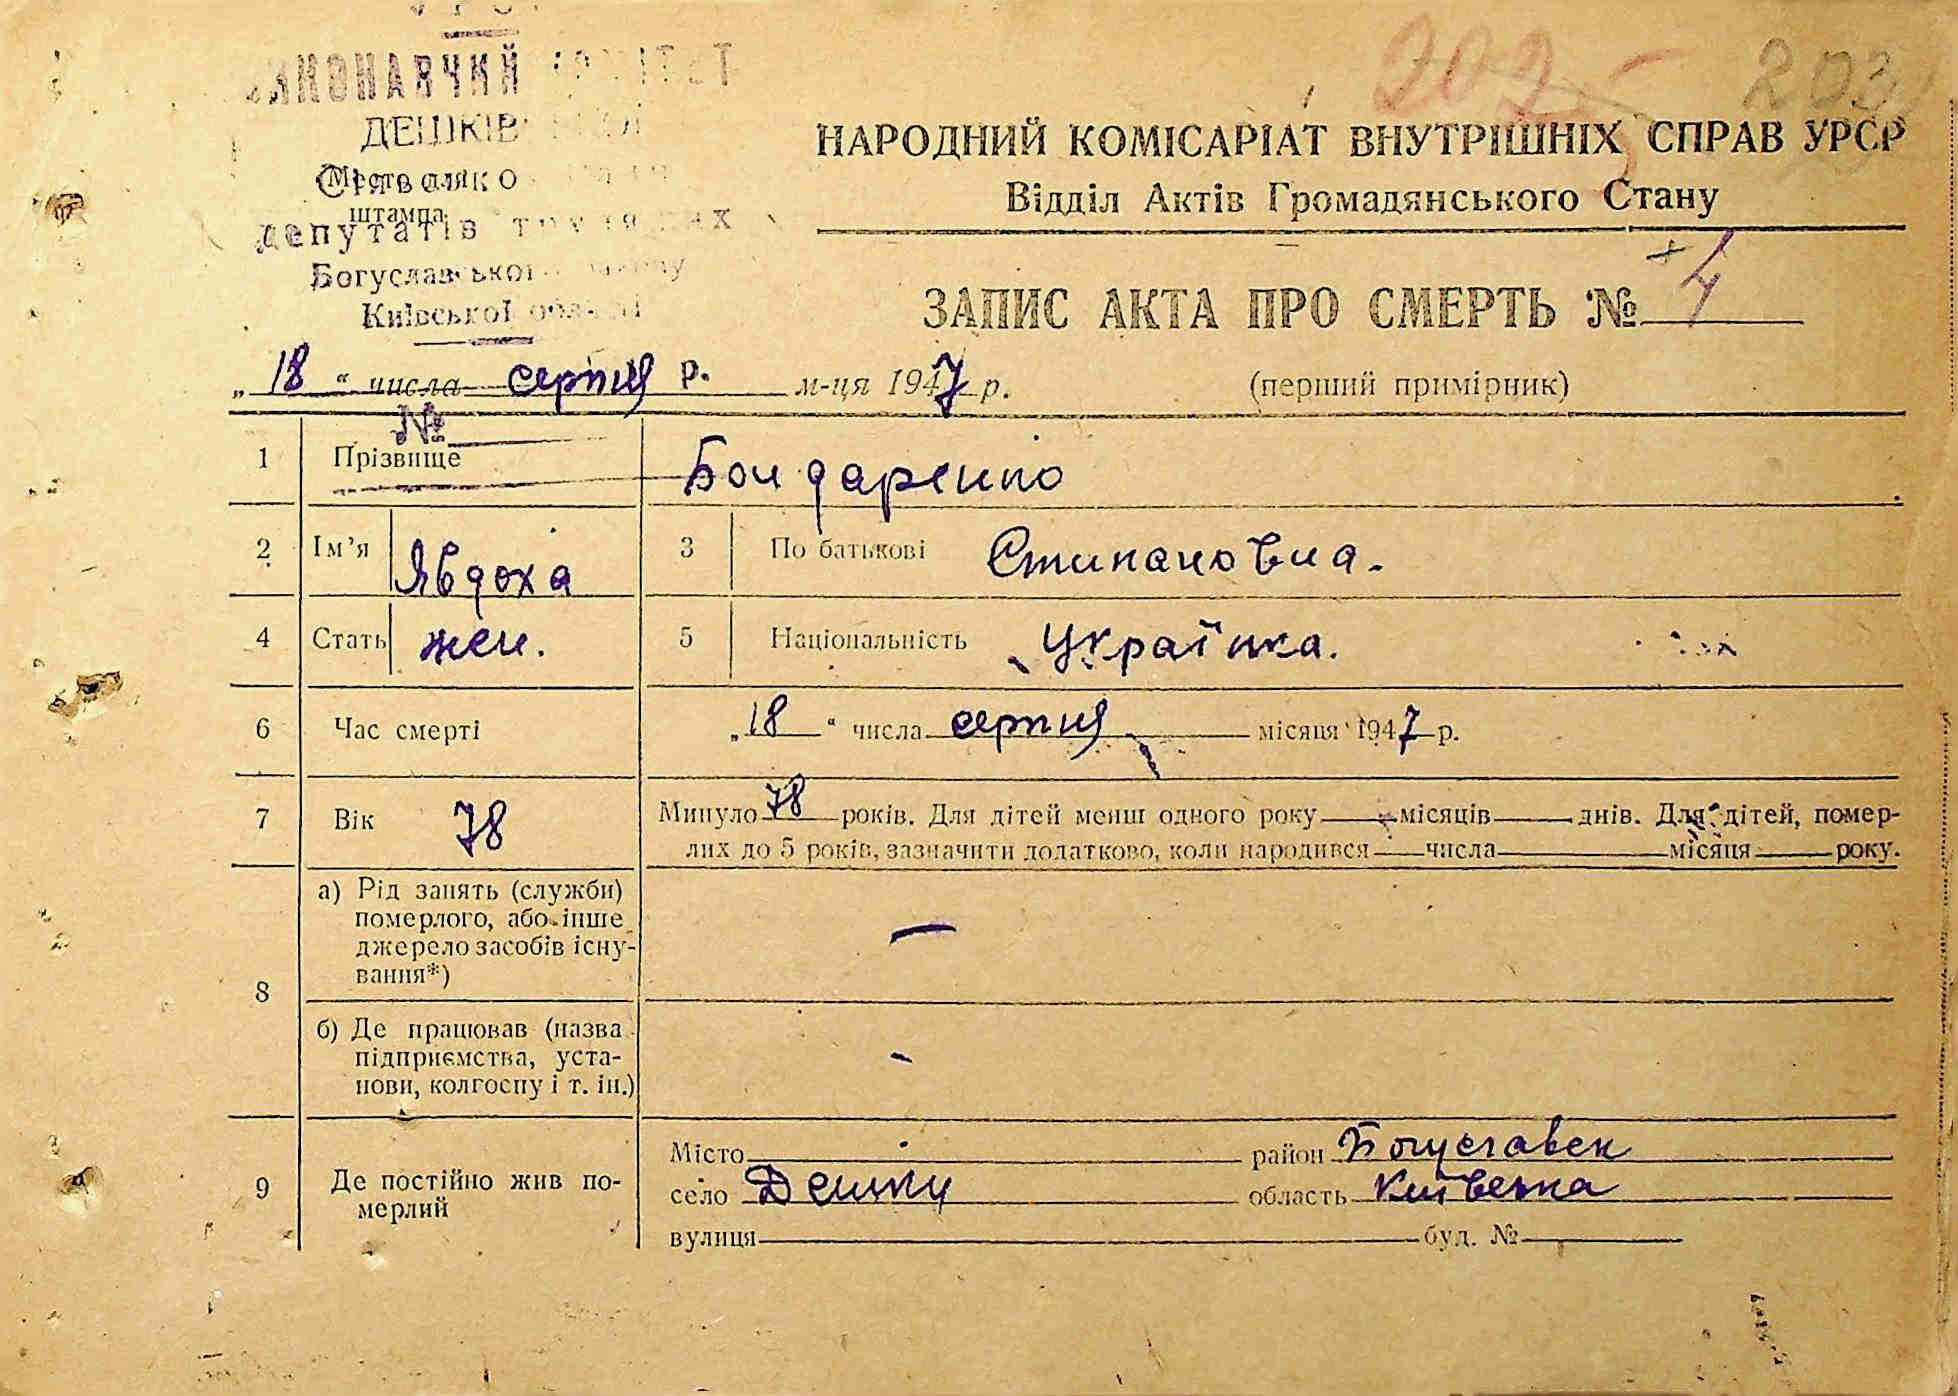 202 203
УРСР
ВИКОНАВЧИЙ КОМІТЕТ
ДЕШКІВСЬКОЇ
Сільської Ради
Місто для
штампа
депутатів трудящих
Богуславського району
Київської області
НАРОДНИЙ КОМІСАРІАТ ВНУТРІШНІХ СПРАВ УРСР
Відділ Актів Громадянського Стану
ЗАПИС АКТА ПРО СМЕРТЬ № 4
„18“ числа серпня р. м-ця 1947 р. (перший примірник)
№
1 Прізвище Бондаренко
2 Ім’я Явдоха 3 По батькові Стипановна.
4 Стать жен. 5 Національність Українка.
6 Час смерті „18“ числа серпня місяця 1947 р.
7 Вік 78 Минуло 78 років. Для дітей менш одного року місяців днів. Для дітей, помер-
лих до 5 років, зазначити додатково, коли народився числа місяця року.
8 а) Рід занять (служби)
померлого, або інше
джерело засобів існу-
вання*) —
б) Де працював (назва
підприємства, уста-
нови, колгоспу і т. ін.) -
9 Де постійно жив по-
мерлий
Місто район Богуславск
село Дешки область Київська
вулиця буд. №